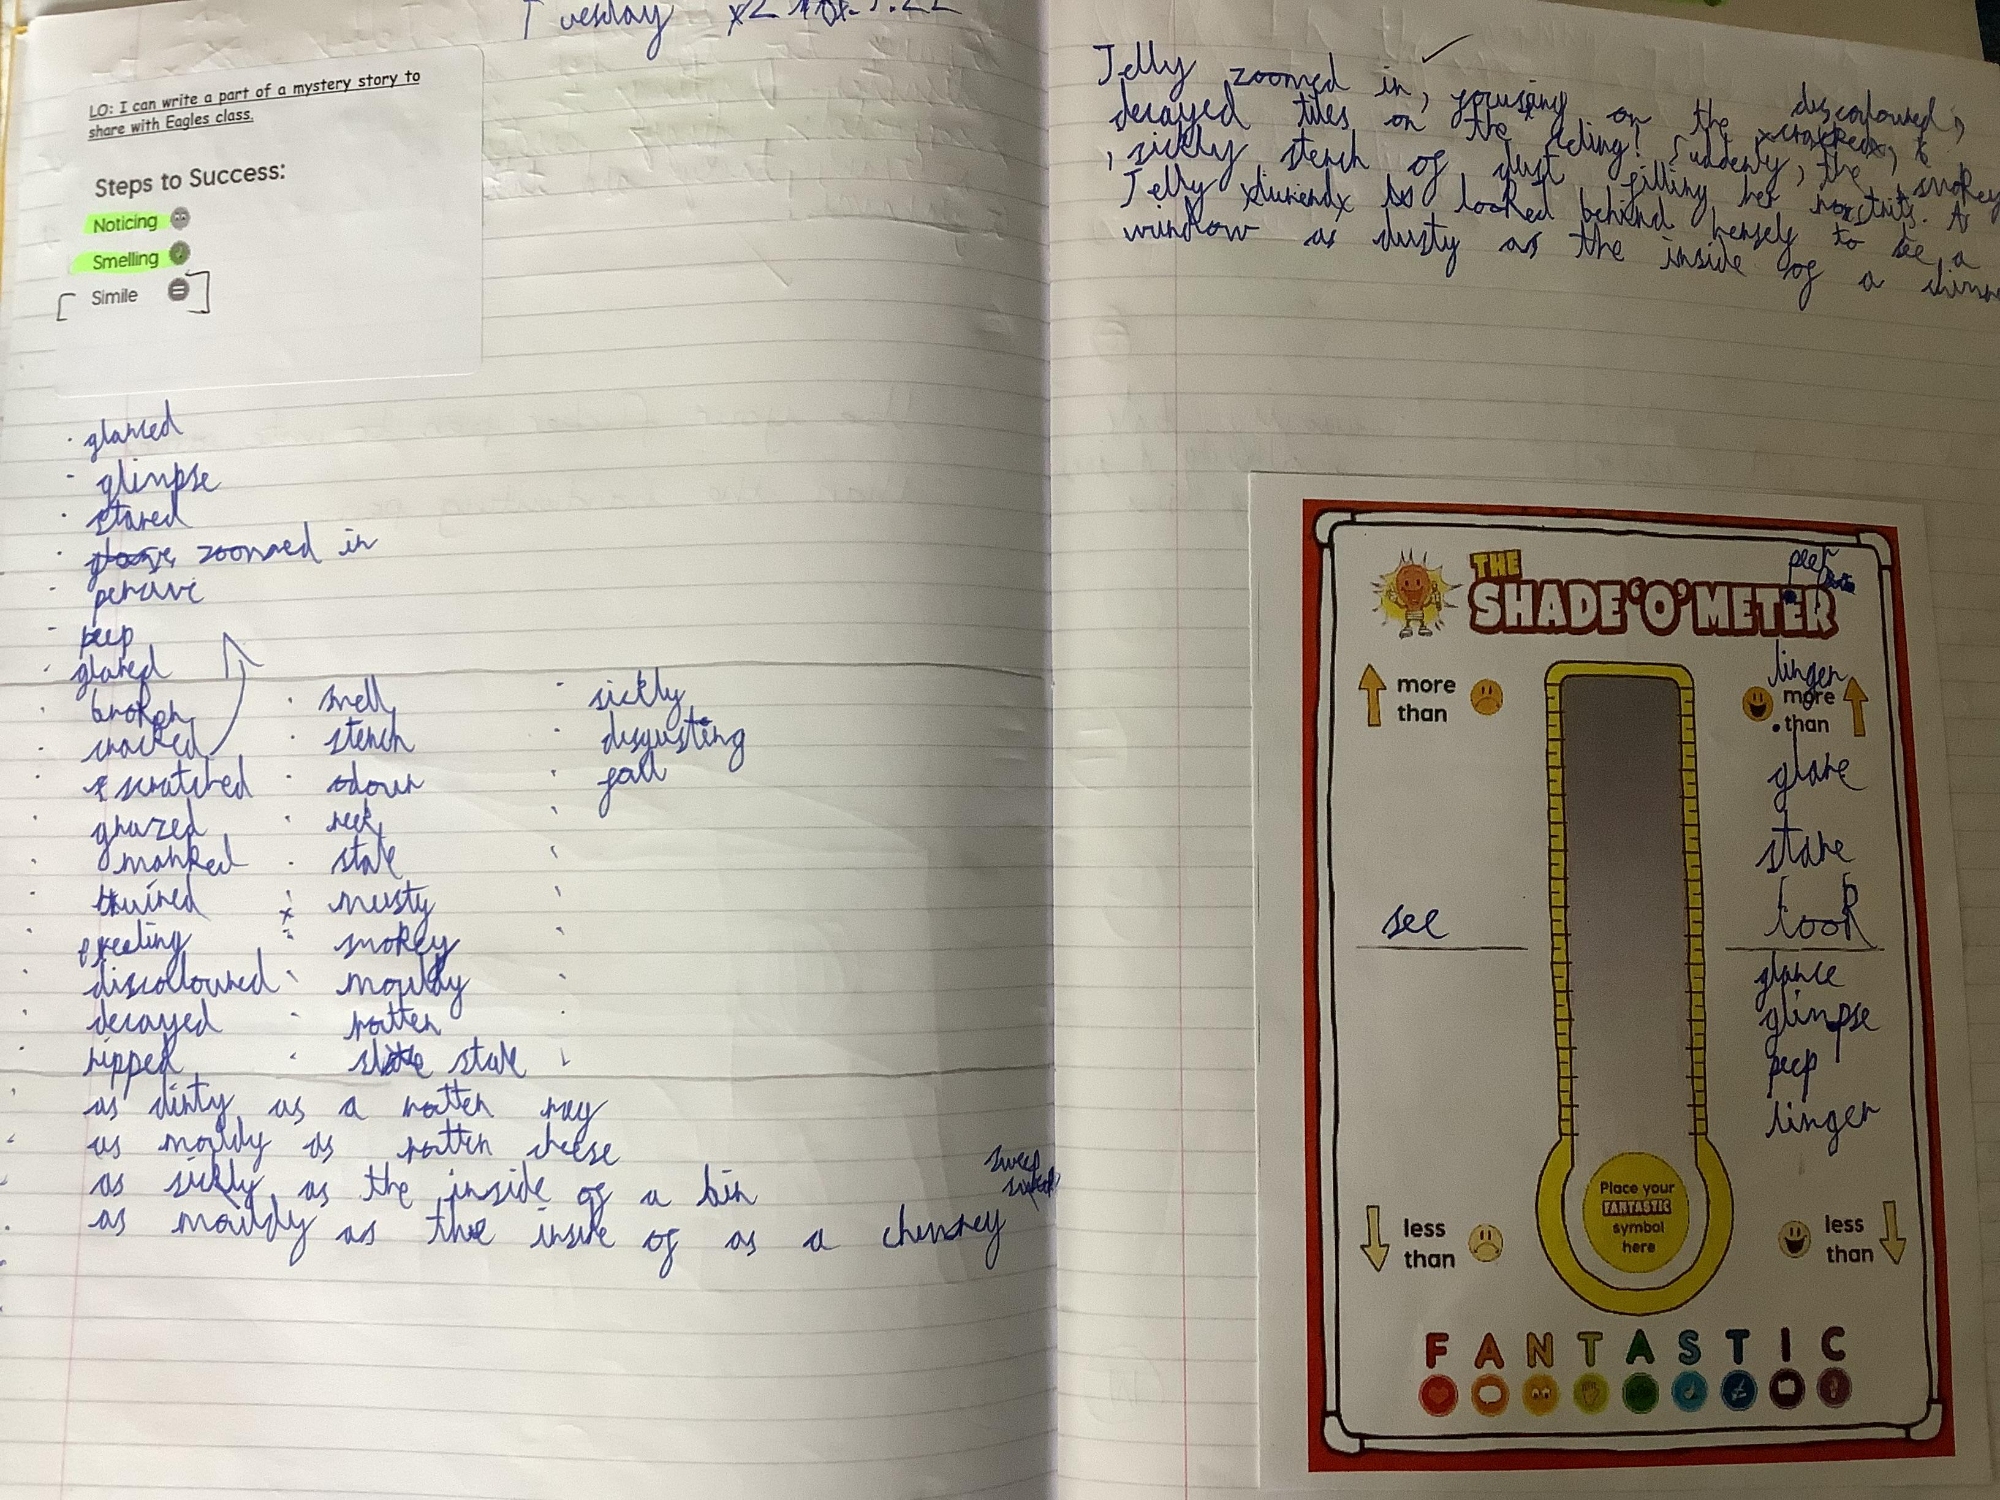 Tuesday
LO: I can write a part of a mystery story to
share with Eagles class.
Steps to Success:
Noticing
Smelling
Simile
glanced
glimpse
stared
zoomed in
peep
glared
broken
cracked
scratched
grazed
marked
ruined
peeling
discoloured
decayed
ripped
smell
stench
odour
reek
stale
musty
smokey
mouldy
rotten
stale
sickly
disgusting
foul
as dirty as a rotten rag
as mouldy as rotten cheese
as sickly as the inside of a bin
as mouldy as the inside of as a chimney
sweep
Jelly zoomed in, focusing on the discoloured,
decayed tiles on the cracked,
, sickly stench of dust filling her nostrils. As
Jelly looked behind herself to see a
window as dusty as the inside of a
THE
SHADE'O'METER
peer
more
than
linger
more
than
glare
stare
look
see
glance
glimpse
peep
linger
Place your
FANTASTIC
symbol
here
less
than
less
than
FANTASTIC